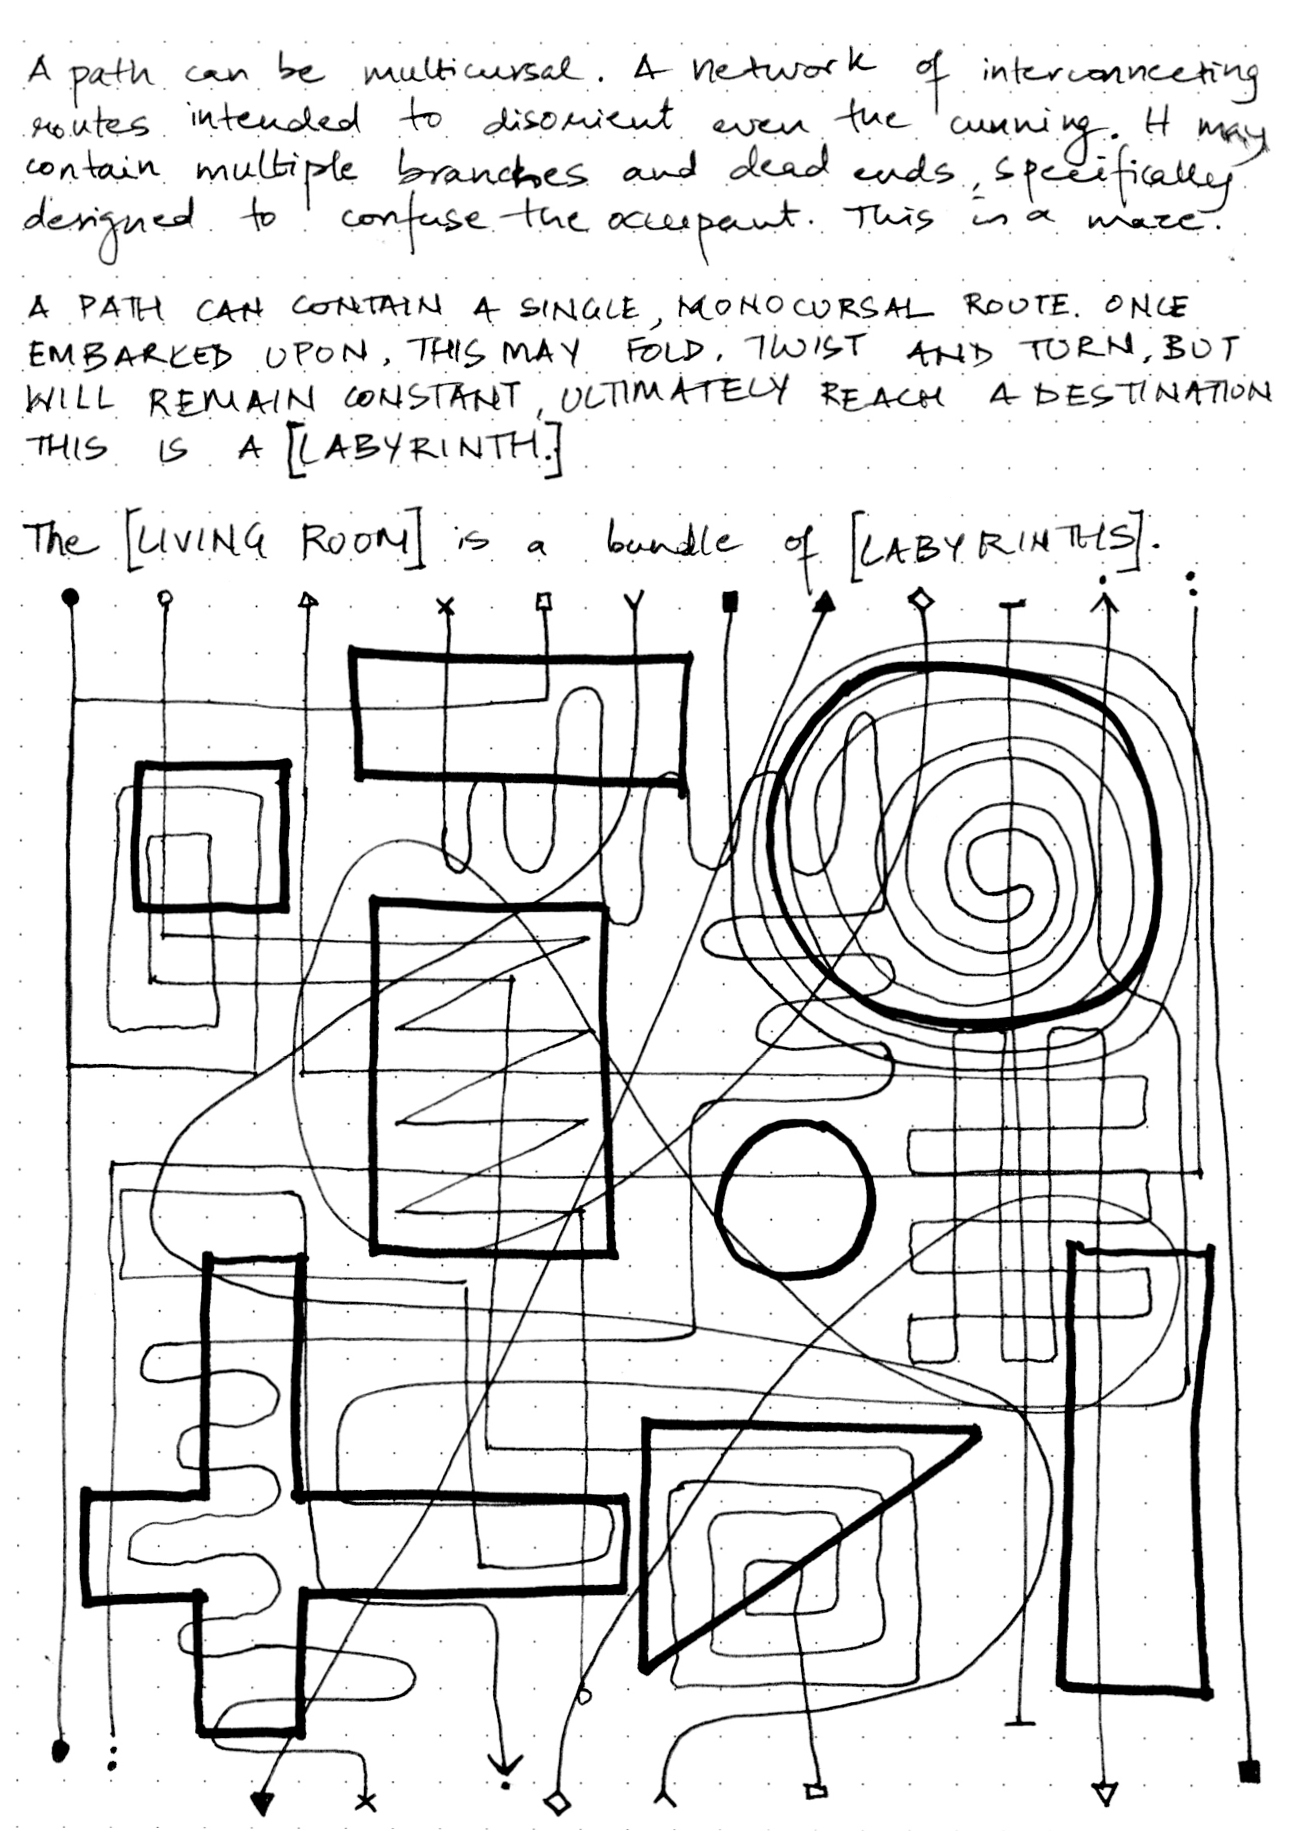 A path can be multicursal. A network of interconnecting
routes intended to disorient even the cunning. It may
contain multiple branches and dead ends, specifically
designed to confuse the occupant. This is a maze.
A PATH CAN CONTAIN A SINGLE, MONOCURSAL ROUTE. ONCE
EMBARKED UPON, THIS MAY FOLD, TWIST AND TURN, BUT
WILL REMAIN CONSTANT, ULTIMATELY REACH A DESTINATION
THIS IS A [LABYRINTH.]
The [LIVING ROOM] is a bundle of [LABYRINTHS].